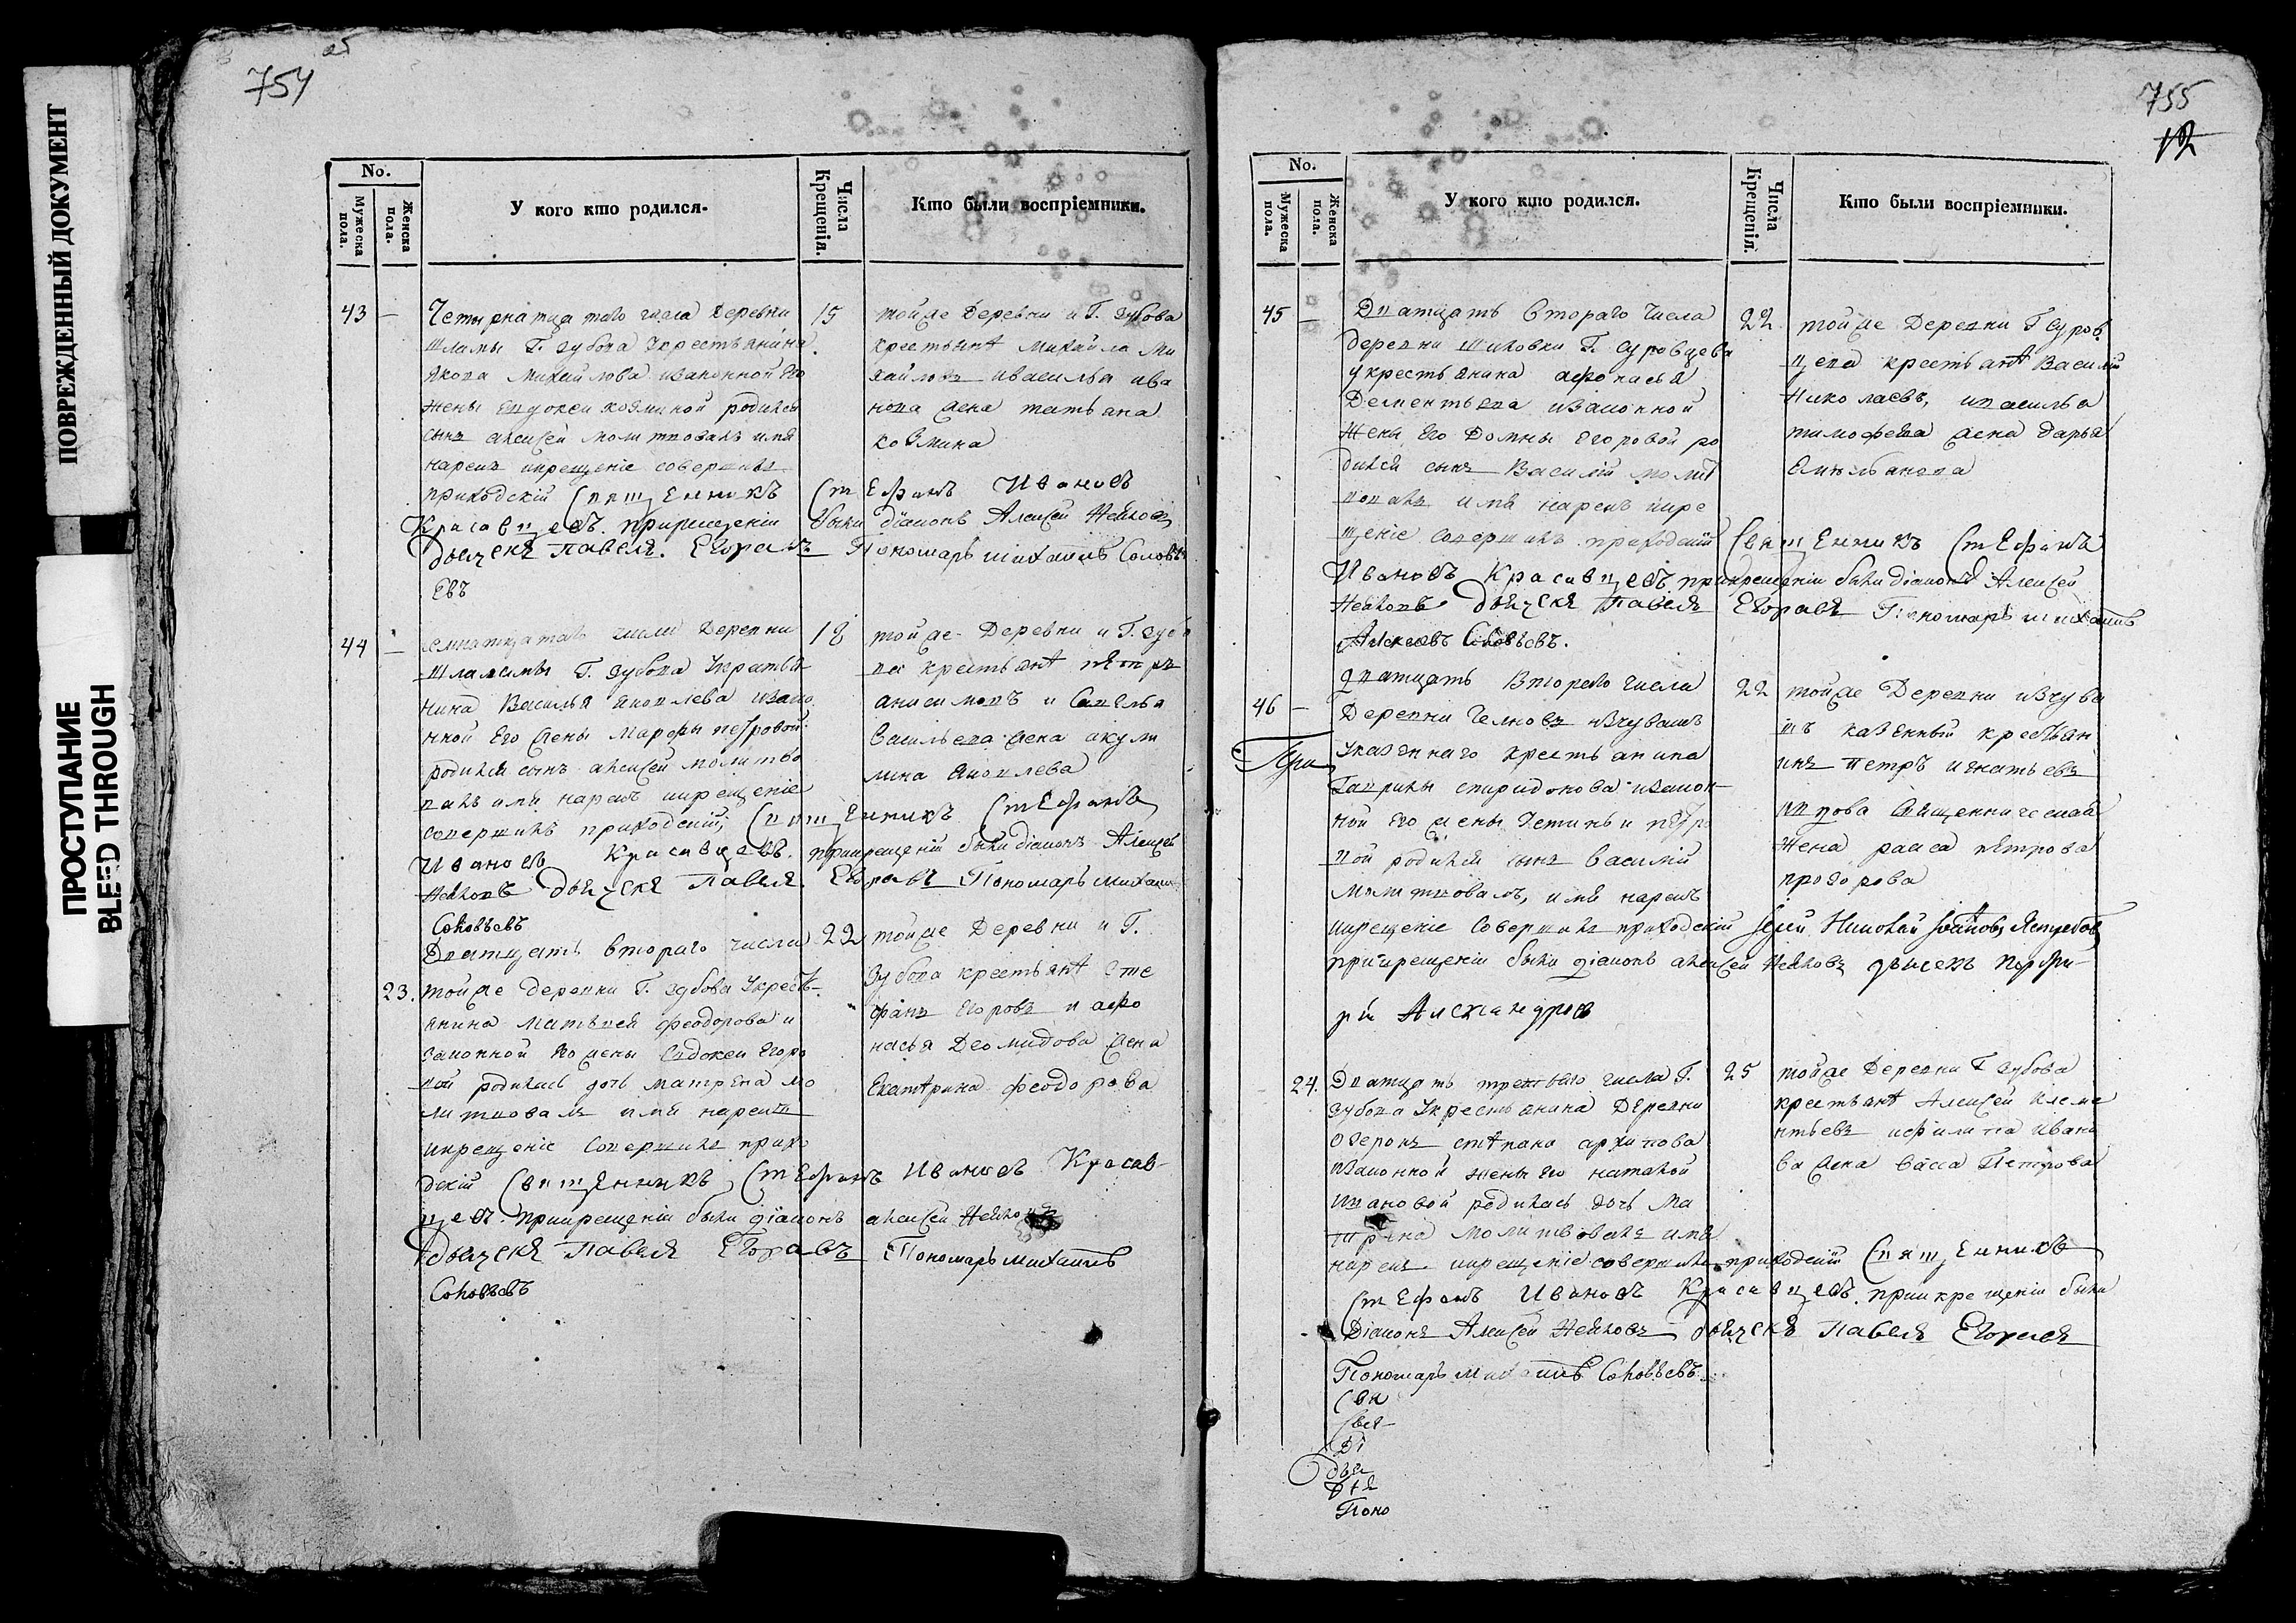 ПОВРЕЖДЕННЫЙ ДОКУМЕНТ
ПРОСТУПАНИЕ
BLEED THROUGH
754
No.
Мужеска пола.
Женска пола.
У кого кто родился.
Числа Крещенія.
Кто были воспріемники.
43 —
Четырнатцатого числа Деревни
Г. Зубова Укрестьянина
Якова Михайлова изаконной Его
жены Евдокеи козминой родился
сынъ алексей молитвовалъ имя
нарекъ икрещеніе совершилъ
приходскій Священникъ Стефанъ Ивановъ
Красавцевъ прикрещеніи были діаконъ Алексей
дьячекъ павелъ Егоровъ Пономарь михаилъ Соловь
евъ
15
тойже Деревни и Г. Зубова
крестьянѣ Михайла Ми
хайловъ ивасилья ива
нова жена татьяна
козмина
44 —
числа Деревни
Г. Зубова Укрестья
нина Василья яковлева изако
нной Его жены Марфы петровой
родился сынъ алексей молитво
валъ имя нарекъ икрещеніе
совершилъ приходскій Священникъ Стефанъ
Ивановъ Красавцевъ прикрещеніи были діаконъ Алексей
дьячекъ Павелъ Егоровъ Пономарь михаилъ
Соловьевъ
18
тойже Деревни и Г. Зубо
ва крестьянѣ пѣтръ
анисимовъ и Савелья
Васильева жена акули
лина яковлева
23.
Дватцать втораго числа
тойже деревни Г. Зубова Укресть
янина матвѣей феодорова и
законной Его жены Евдокеи Егоро
вой родилась дочь матрена мо
литвовалъ имя нарекъ
икрещеніе Совершилъ прихо
дскій Священникъ Стефанъ Ивановъ Красав
цевъ. прикрещеніи были діаконъ алексей
дьячекъ павелъ Егоровъ Пономарь михаилъ
Соловьевъ
22
тойже Деревни и Г.
Зубова крестьянѣ Сте
фанъ Егоровъ и афо
насья Деомидова жена
Екатѣрина феодорова
755
12
No.
Мужеска пола.
Женска пола.
У кого кто родился.
Числа Крещенія.
Кто были воспріемники.
45 —
Дватцать втораго числа
деревни Г. Суровцева
укрестьянина афонасья
Дементьева изаконной
жены Его Домны Егоровой ро
дился сынъ Василій молит
вовалъ имя нарекъ икре
щеніе совершилъ приходскій Священникъ Стефанъ
Ивановъ Красавцевъ прикрещеніи были діаконъ Алексей
дьячекъ Павелъ Егоровъ Пономарь михаилъ
Алексеевъ Соловьевъ.
22
тойже Деревни Г Суров
цева крестьянѣ Василій
Николаевъ, ивасилья
тимофеева жена дарья
46 —
При
Дватцать втораго числа
Деревни изчувашъ
Гаврилы спиридонова изакон
ной его жены Устиньи пѣтро
вой родился сынъ василій
молитвовалъ, имя нарекъ
икрещеніе Совершилъ приходскій Іерей Николай Іоанновъ Ястребовъ
прикрещеніи были діаконъ алексей дьячекъ порфи
рій Александровъ
22
тойже Деревни изчува
шъ казенный крестьян
инъ петръ игнатьевъ
священническая
жена раиса пѣтрова
24.
Дватцать третьяго числа Г.
Зубова Укрестьянина Деревни
Озеронъ стѣпана архипова
изаконной жены Его наталой
ивановой родилась дочь ма
трена молитвовалъ имя
нарекъ икрещеніе совершилъ приходскій Священникъ
Стефанъ Ивановъ Красавцевъ. прикрещеніи были
Діаконъ Алексей дьячекъ Павелъ Егоровъ
Пономарь михаилъ Соловьевъ.
25
тойже Деревни Г Зубова
крестьянѣ Алексей клеме
нтьевъ ифилипа ивано
ва жена васса Петрова
Свя
Свя
Ді
дья
Поно